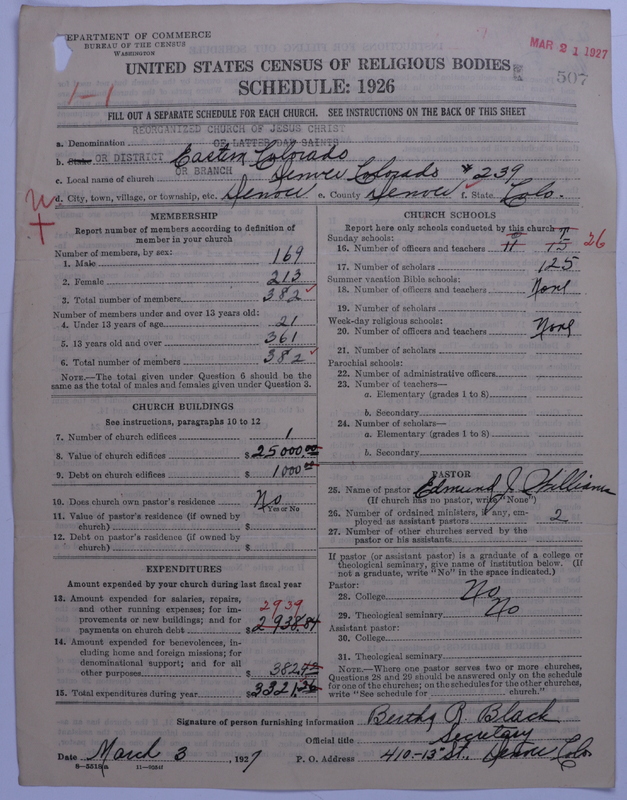 DEPARTMENT OF COMMERCE
BUREAU OF THE CENSUS
WASHINGTON
MAR 21 1927
UNITED STATES CENSUS OF RELIGIOUS BODIES
507
SCHEDULE: 1926
1-1
FILL OUT A SEPARATE SCHEDULE FOR EACH CHURCH. SEE INSTRUCTIONS ON THE BACK OF THIS SHEET
REORGANIZED CHURCH OF JESUS CHRIST
a. Denomination OF LATTER DAY SAINTS
b. State OR DISTRICT Eastern Colorado
OR BRANCH
c. Local name of church Denver Colorado #239
d. City, town, village, or township, etc. Denver e. County Denver f. State Colo.
MEMBERSHIP
Report number of members according to definition of member in your church
Number of members, by sex:
1. Male 169
2. Female 213
3. Total number of members 382
Number of members under and over 13 years old:
4. Under 13 years of age 21
5. 13 years old and over 361
6. Total number of members 382
NOTE.—The total given under Question 6 should be the same as the total of males and females given under Question 3.
CHURCH BUILDINGS
See instructions, paragraphs 10 to 12
7. Number of church edifices 1
8. Value of church edifices $ 25000.00
9. Debt on church edifices $ 1000.00
10. Does church own pastor's residence No
Yes or No
11. Value of pastor's residence (if owned by church) $
12. Debt on pastor's residence (if owned by church) $
EXPENDITURES
Amount expended by your church during last fiscal year
13. Amount expended for salaries, repairs, and other running expenses; for improvements or new buildings; and for payments on church debt $ 2938.84
2939
14. Amount expended for benevolences, including home and foreign missions; for denominational support; and for all other purposes $ 382.42
15. Total expenditures during year $ 3321.26
CHURCH SCHOOLS
Report here only schools conducted by this church
Sunday schools:
16. Number of officers and teachers 11 15 26
17. Number of scholars 125
Summer vacation Bible schools:
18. Number of officers and teachers None
19. Number of scholars
Week-day religious schools:
20. Number of officers and teachers None
21. Number of scholars
Parochial schools:
22. Number of administrative officers
23. Number of teachers—
a. Elementary (grades 1 to 8)
b. Secondary
24. Number of scholars—
a. Elementary (grades 1 to 8)
b. Secondary
PASTOR
25. Name of pastor Edmund J. Williams
(If church has no pastor, write "None")
26. Number of ordained ministers, if any, employed as assistant pastors 2
27. Number of other churches served by the pastor or his assistants
If pastor (or assistant pastor) is a graduate of a college or theological seminary, give name of institution below. (If not a graduate, write "No" in the space indicated.)
Pastor:
28. College No
29. Theological seminary No
Assistant pastor:
30. College
31. Theological seminary
NOTE.—Where one pastor serves two or more churches, Questions 28 and 29 should be answered only on the schedule for one of the churches; on the schedules for the other churches, write "See schedule for church."
Signature of person furnishing information Bertha R. Black
Official title Secretary
Date March 3, 1927 P. O. Address 410-13th St., Denver Colo